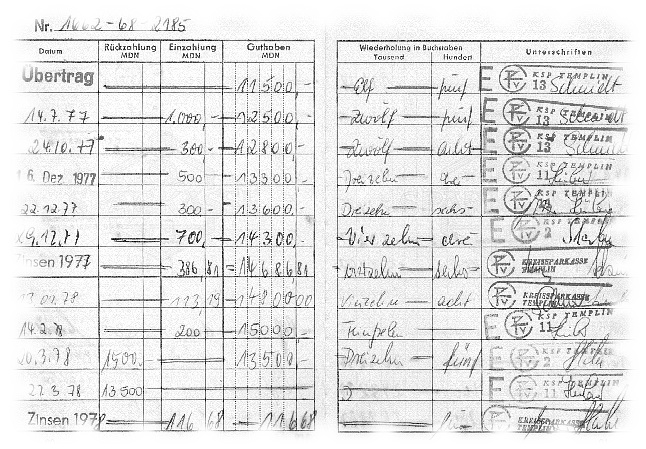 Nr. 1662-68-2185
Datum Rückzahlung MDN Einzahlung MDN Guthaben MDN Wiederholung in Buchstaben Tausend Hundert Unterschriften
Übertrag 11500,- Elf fünf E KSP TEMPLIN 13 Schmidt
14.7.77 1.000,- 12500,- Zwölf fünf E KSP TEMPLIN 13
24.10.77 300,- 12800,- Zwölf acht E KSP TEMPLIN 13
6. Dez. 1977 500 13300,- Dreizehn drei E KSP TEMPLIN 11
22.12.77 300- 13600,- Dreizehn sechs E KSP TEMPLIN
29.12.77 700,- 14300,- Vierzehn drei E KSP TEMPLIN 2
Zinsen 1977 386,81 14686,81 vierzehn sechs KREISSPARKASSE TEMPLIN
.01.78 113,19 14800,00 Vierzehn acht KREISSPARKASSE TEMPLIN
14.2.78 200 15000,- Fünfzehn E KSP TEMPLIN 11
20.3.78 1500,- 13500,- Dreizehn fünf E KSP TEMPLIN 2
22.3.78 13500 E KSP TEMPLIN 11
Zinsen 1978 116,68 116,68 KREISSPARKASSE TEMPLIN